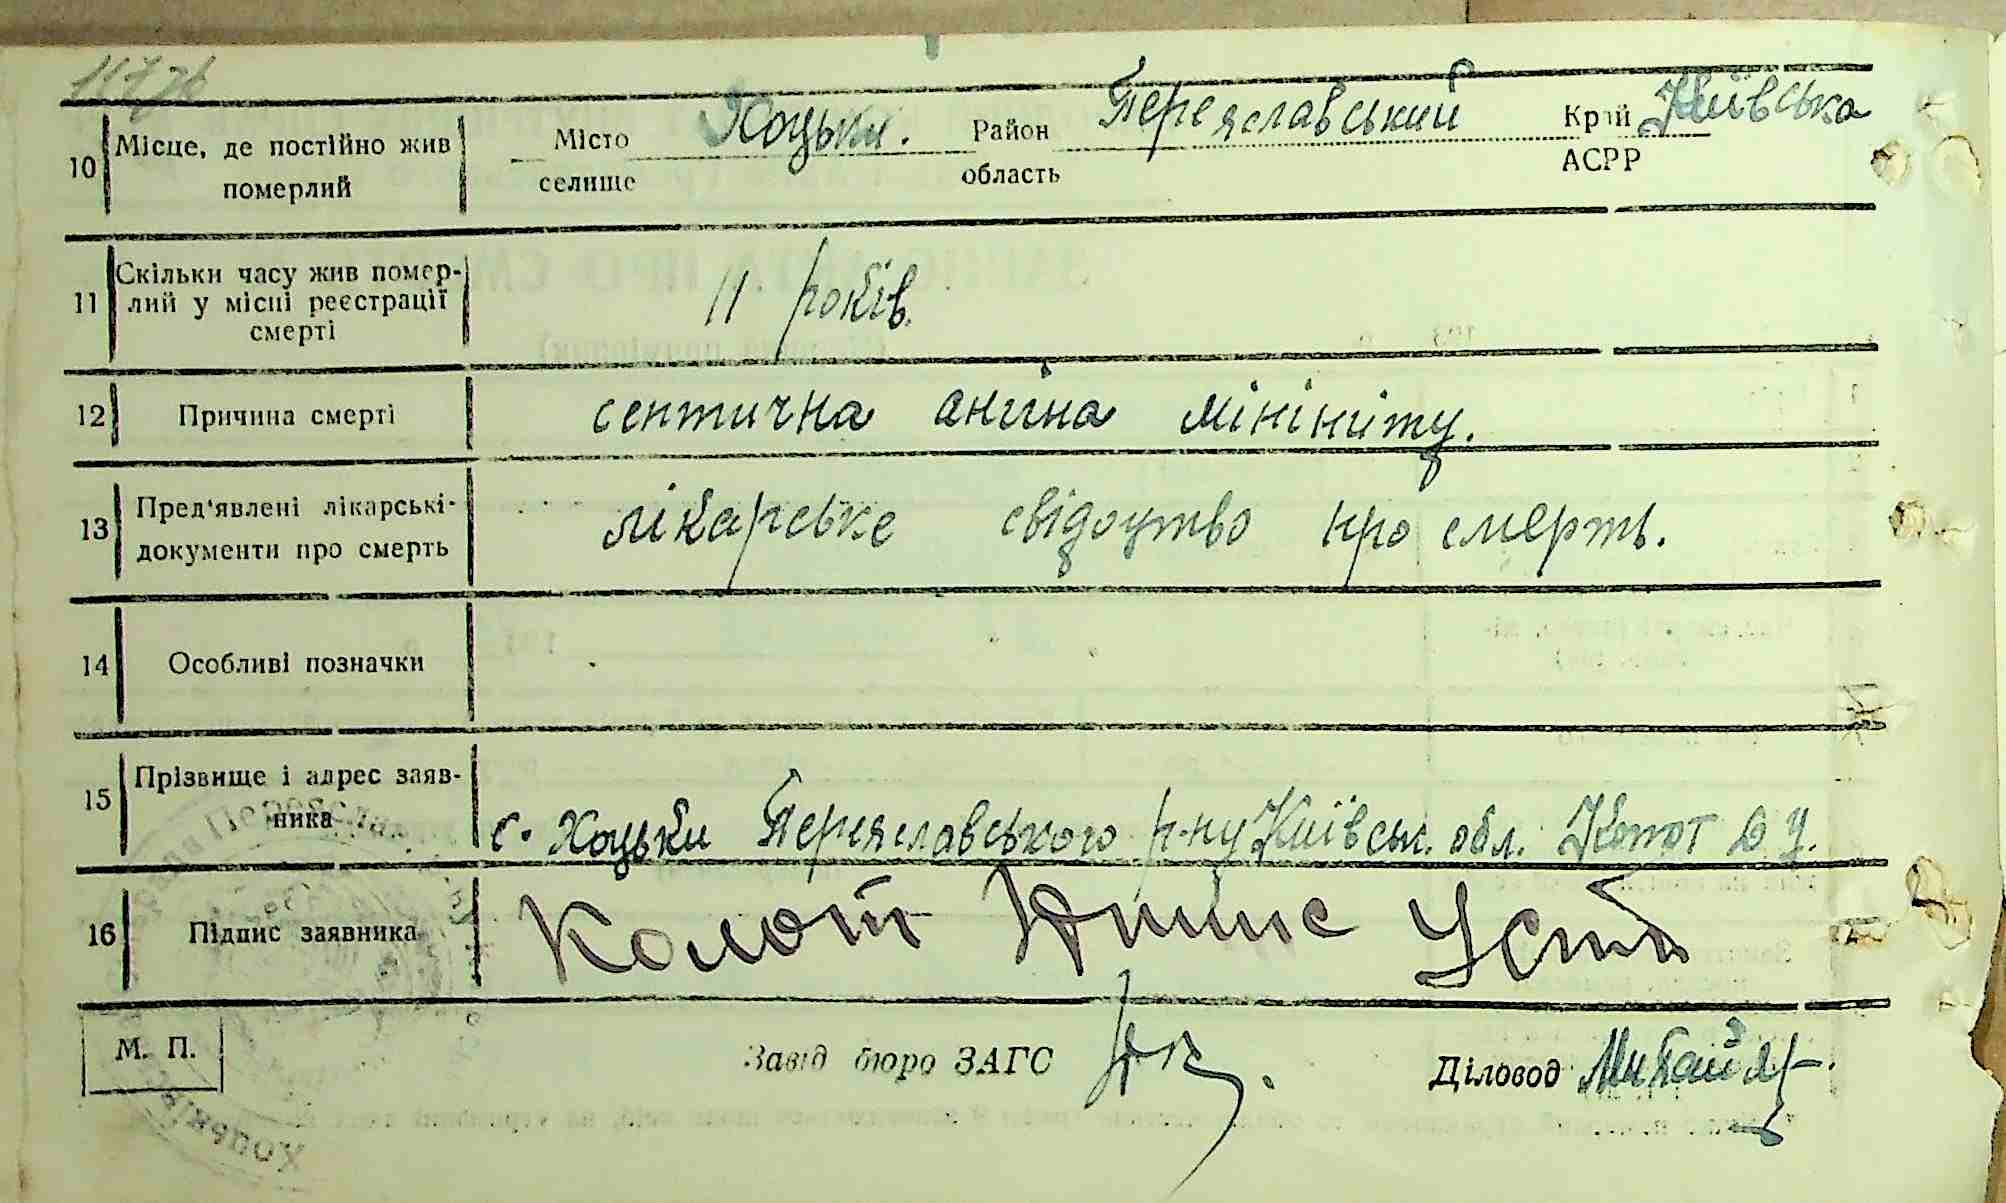 11776
10 Місце, де постійно жив померлий Місто селище Хоцьки. Район область Переяславський Край АСРР Київська
11 Скільки часу жив помер-
лий у місці реєстрації
смерті 11 років.
12 Причина смерті септична ангіна мінінгіту.
13 Пред'явлені лікарські-
документи про смерть лікарське свідоцтво про смерть.
14 Особливі позначки
15 Прізвище і адрес заяв-
ника с. Хоцьки Переяславського р-ну Київськ. обл. Колот Д У.
16 Підпис заявника Колот Уст
М. П. Завід бюро ЗАГС Діловод